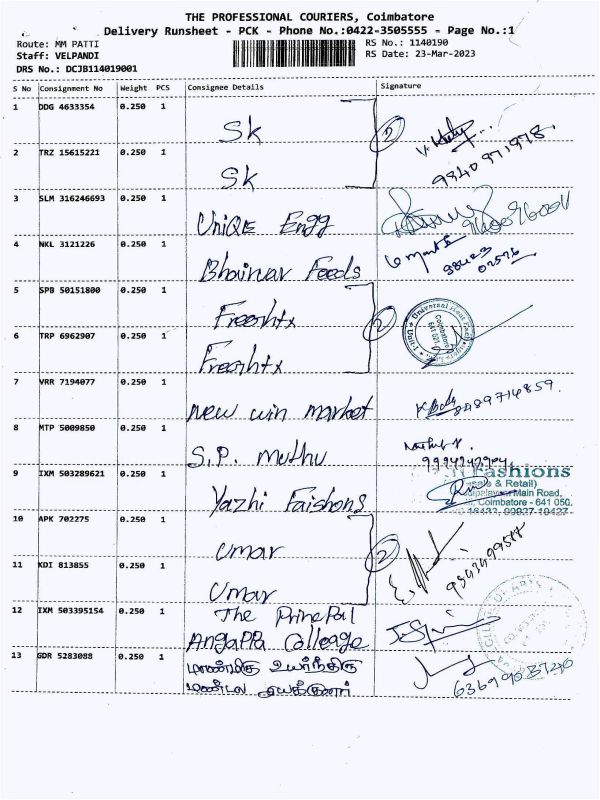 THE PROFESSIONAL COURIERS, Coimbatore
Delivery Runsheet - PCK - Phone No.:0422-3505555 - Page No.:1
Route: MM PATTI
RS No.: 1140190
Staff: VELPANDI
RS Date: 23-Mar-2023
DRS No.: DCJB114019001
S No Consignment No Weight PCS Consignee Details Signature
1 DDG 4633354 0.250 1
Sk
2
2 TRZ 15615221 0.250 1
Sk
3 SLM 316246693 0.250 1
UniQE Engg
4 NKL 3121226 0.250 1
Bhairav Feeds
5 SPB 50151800 0.250 1
Freshtx
2
6 TRP 6962907 0.250 1
Freshtx
7 VRR 7194077 0.250 1
New win market
8489714859.
8 MTP 5009850 0.250 1
S.P. Muthu
9 IXM 503289621 0.250 1
Yazhi Faishons
Fashions
& Retail)
Main Road,
Coimbatore - 641 050.
10 APK 702275 0.250 1
Umar
2
11 KDI 813855 0.250 1
Umar
12 IXM 503395154 0.250 1
The Prinepal
Angappa Colleage
13 GDR 5283088 0.250 1
மாண்மிகு உயர்ந்திகு
மண்டல இயக்குனர்